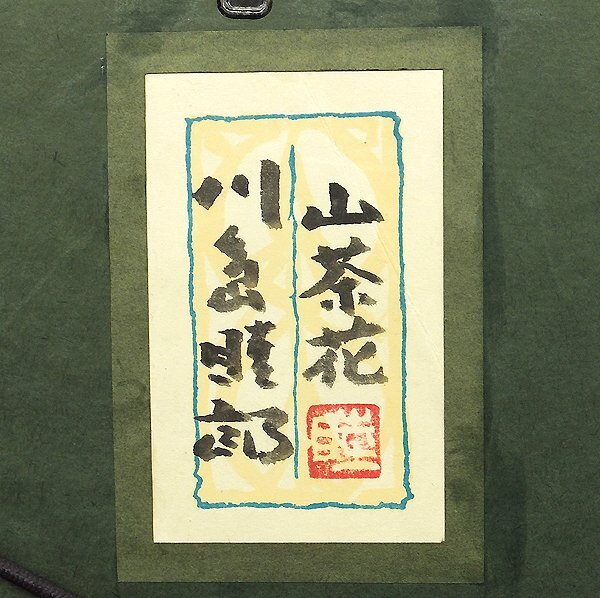 山茶花
睦
川島睦郎